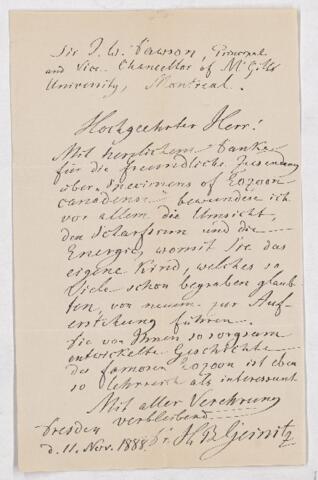 Sir J. W. Dawson, Principal
and Vice-Chancellor of McGill
University, Montreal.
Hochgeehrter Herr!
Mit herzlichem Danke
für die freundliche Zusendung
über Specimens of Eozoon
canadense bewundere ich
vor allem die Umsicht,
den Scharfsinn und die
Energie, womit Sie das
eigene Kind, welches so
Viele schon begraben glaub-
ten, von neuem zur Auf-
erstehung führen.
Die von Ihnen so sorgsam
entwickelte Geschichte
des famosen Eozoon ist eben
so lehrreich als interessant.
Mit aller Verehrung
verbleibend
Dresden
d. 11. Nov. 1888. Dr. H. B. Geinitz